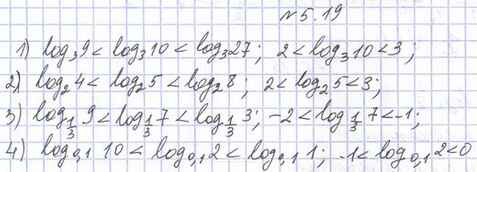 №5.19
1) log₃9 < log₃10 < log₃27; 2 < log₃10 < 3;
2) log₂4 < log₂5 < log₂8; 2 < log₂5 < 3;
3) log_{1/3} 9 < log_{1/3} 7 < log_{1/3} 3; -2 < log_{1/3} 7 < -1;
4) log₀,₁ 10 < log₀,₁ 2 < log₀,₁ 1; -1 < log₀,₁ 2 < 0